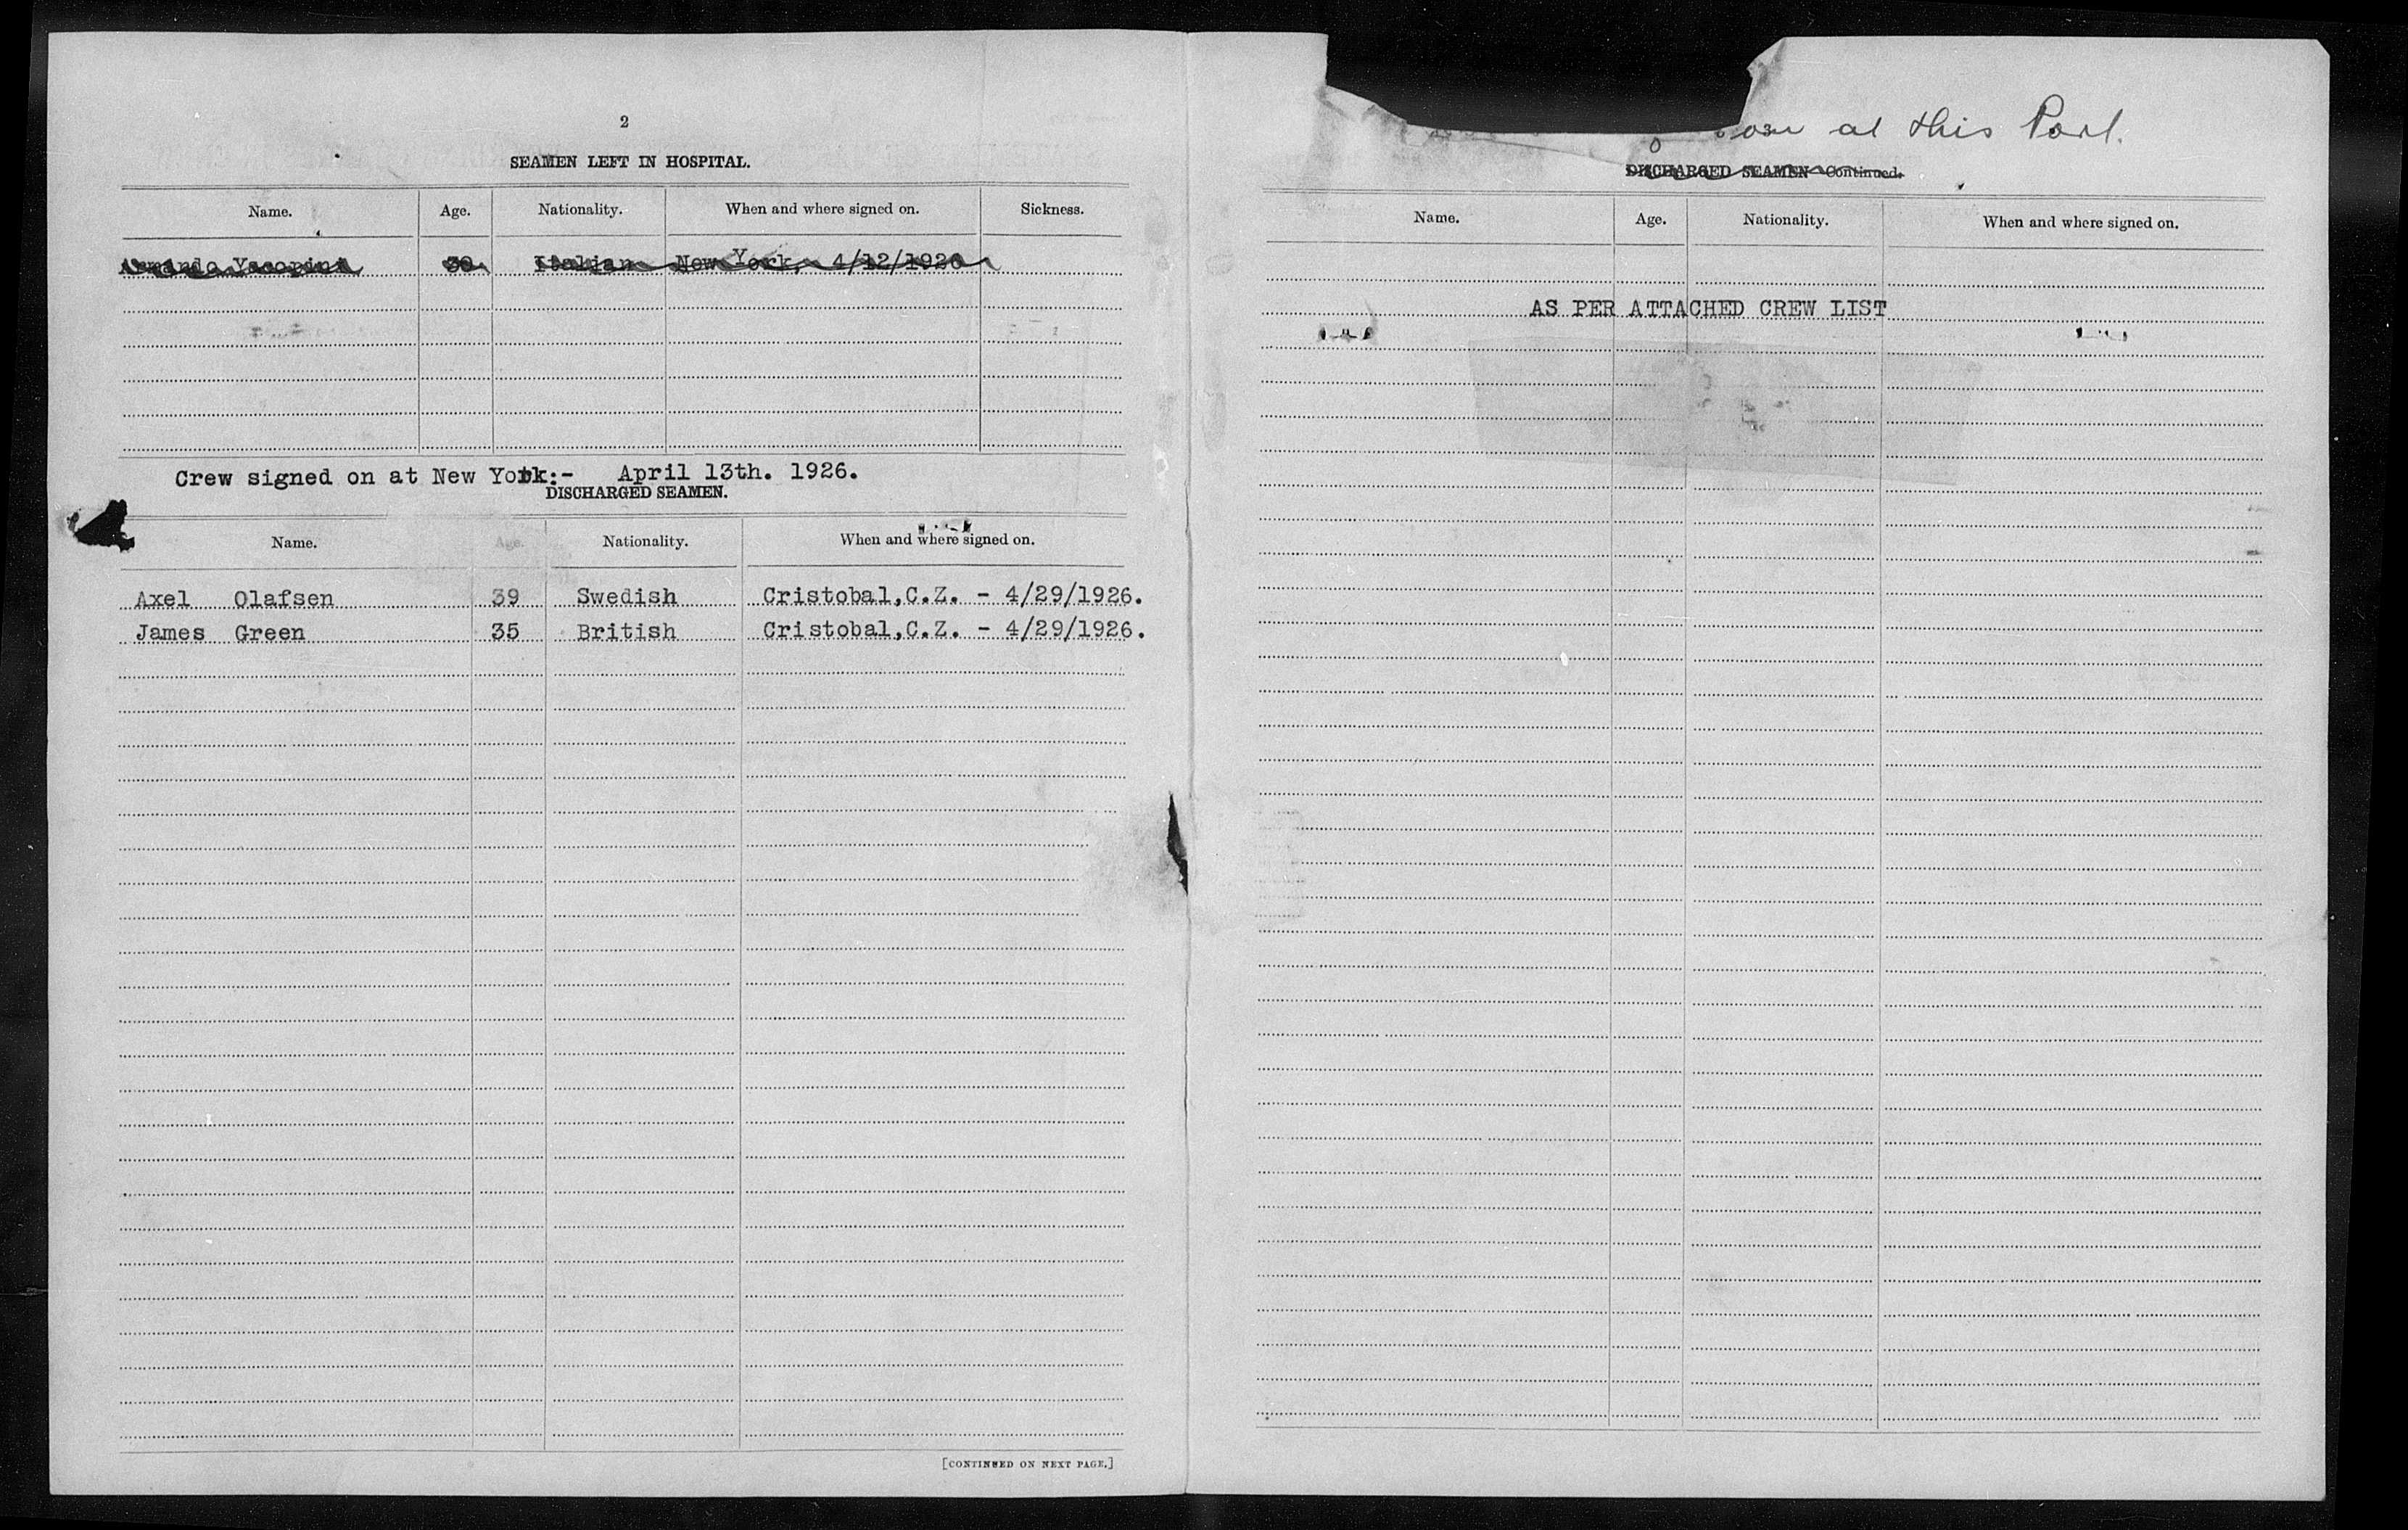 2
SEAMEN LEFT IN HOSPITAL.
Name. Age. Nationality. When and where signed on. Sickness.
Armando 30 Italian New York, 4/12/1926
Crew signed on at New York:- April 13th. 1926.
DISCHARGED SEAMEN.
Name. Age. Nationality. When and where signed on.
Axel Olafsen 39 Swedish Cristobal,C.Z. - 4/29/1926.
James Green 35 British Cristobal,C.Z. - 4/29/1926.
[CONTINUED ON NEXT PAGE.]
at this Port.
DISCHARGED SEAMEN—Continued.
Name. Age. Nationality. When and where signed on.
AS PER ATTACHED CREW LIST